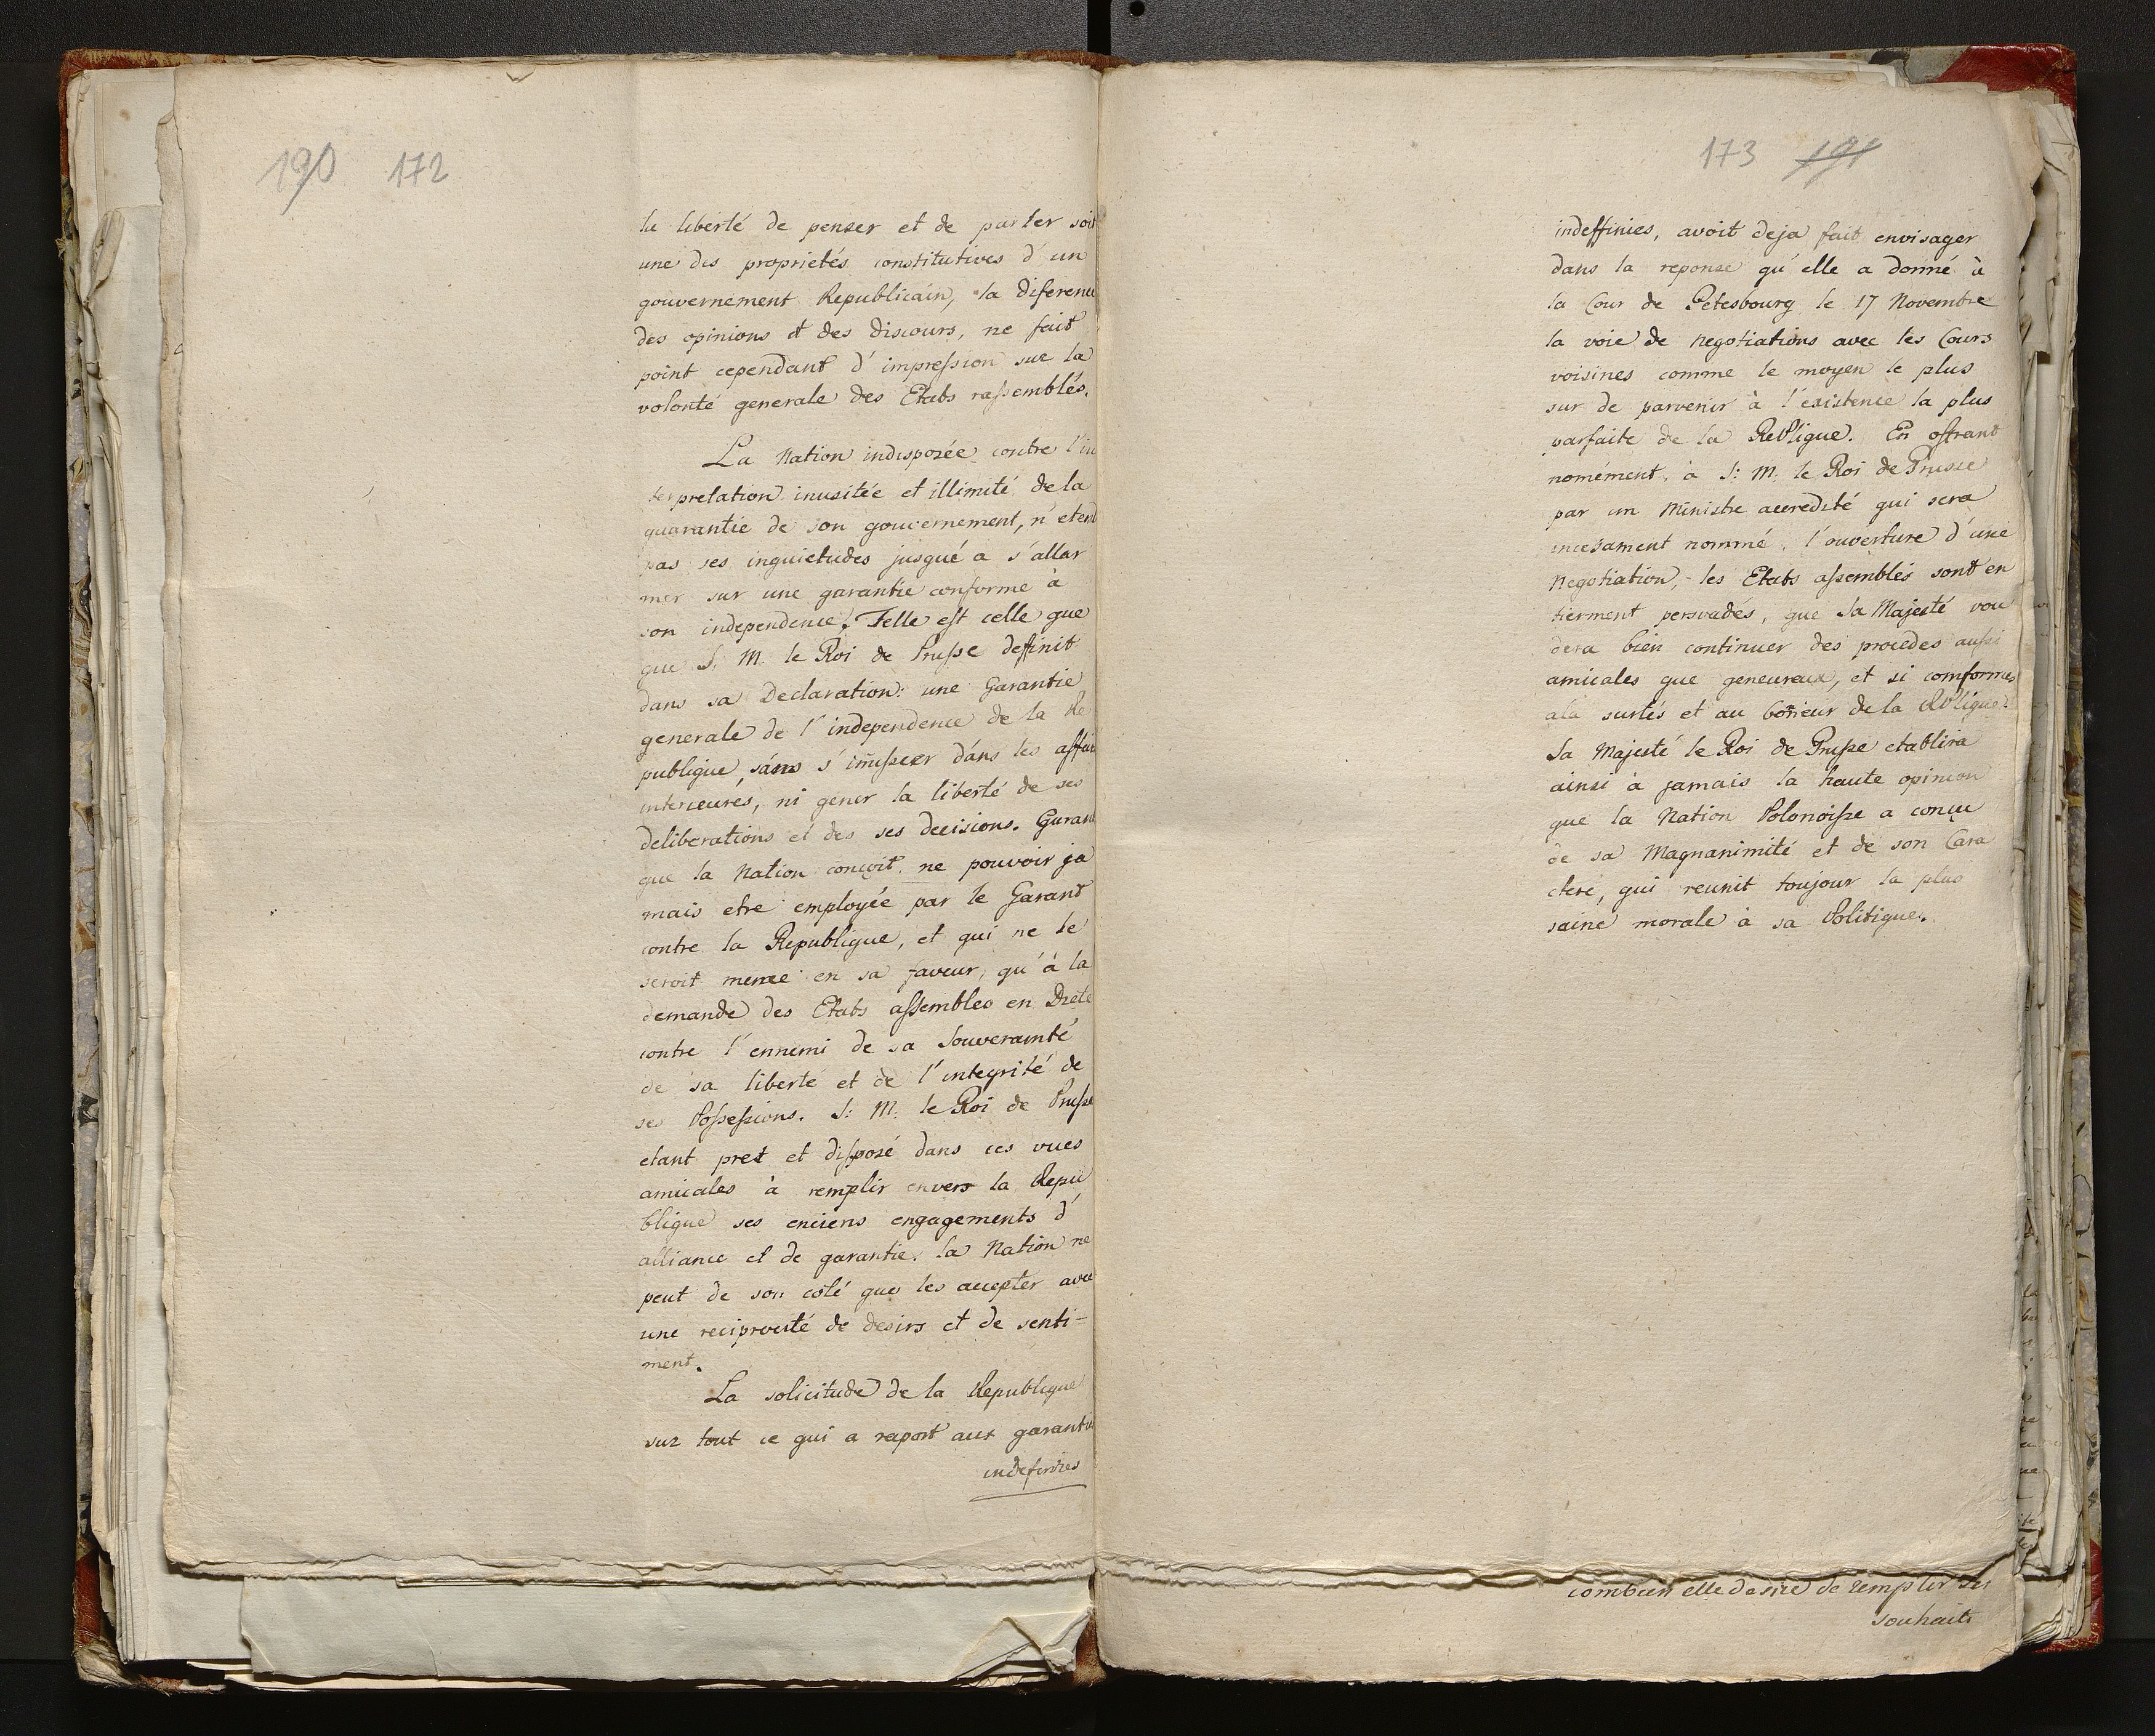 190 172
la liberté de penser et de parler soit
une des proprietés constitutives d'un
gouvernement Republicain, la diference
des opinions et des discours, ne fait
point cependant d'impression sur la
volonté generale des Etats rassemblés.
La Nation indisposée contre l'in
terpretation inusitée et illimité de la
guarantie de son gouvernement, n'etend
pas ses inquietudes jusqué a s'allar
mer sur une garantie conforme à
son independence. Telle est celle que
que S. M. le Roi de Prusse deffinit
dans sa Declaration: une Garantie
generale de l'independence de la Re
publique, sans s'imisseer dans les affai
interieures, ni gener la liberté de ses
deliberations et des ses decisions. Garant
que la Nation conçoit, ne pouvoir ja
mais etre employée par le Garant
contre la Republique, et qui ne le
seroit meme en sa faveur, qu'à la
demande des Etats assembles en Diete
contre l'ennemi de sa Souverainté
de sa liberte et de l'integrité de
ses Possessions. S: M. le Roi de Prusse
etant pret et disposé dans ces vues
amicales à remplir envers la Repu
blique ses enciens engagements d'
alliance et de garantie. la Nation ne
peut de son coté que les accepter avec
une reciprocité de desirs et de senti-
ment.
La solicitude de la Republique
sur tout ce qui a raport aux garanties
indefinies
173 191
indeffinies, avoit deja fait envisager
dans la reponse qu'elle a donné à
la Cour de Petesbourg le 17 Novembre
la voie de negotiations avec les Cours
voisines comme le moyen le plus
sur de parvenir à l'existence la plus
parfaite de la Reblique. En offrant
nomément à S: M. le Roi de Prusse
par un Ministre accredité qui sera
incesament nommé, l'ouverture d'une
negotiation, les Etats assemblés sont en
tierment persuadés, que Sa Majesté vou
dera bien continuer des procédes aussi
amicales que geneureux, et si comformes
ala surtés et au bonieur de la Rblique.
Sa Majesté le Roi de Prusse etablira
ainsi à jamais la haute opinion
que la Nation Polonoisse a conçu
de sa Magnanimité et de son Cara
ctere, qui reunit toujour la plus
saine morale à sa Politique.
combien elle desire de remplir ses
souhaits